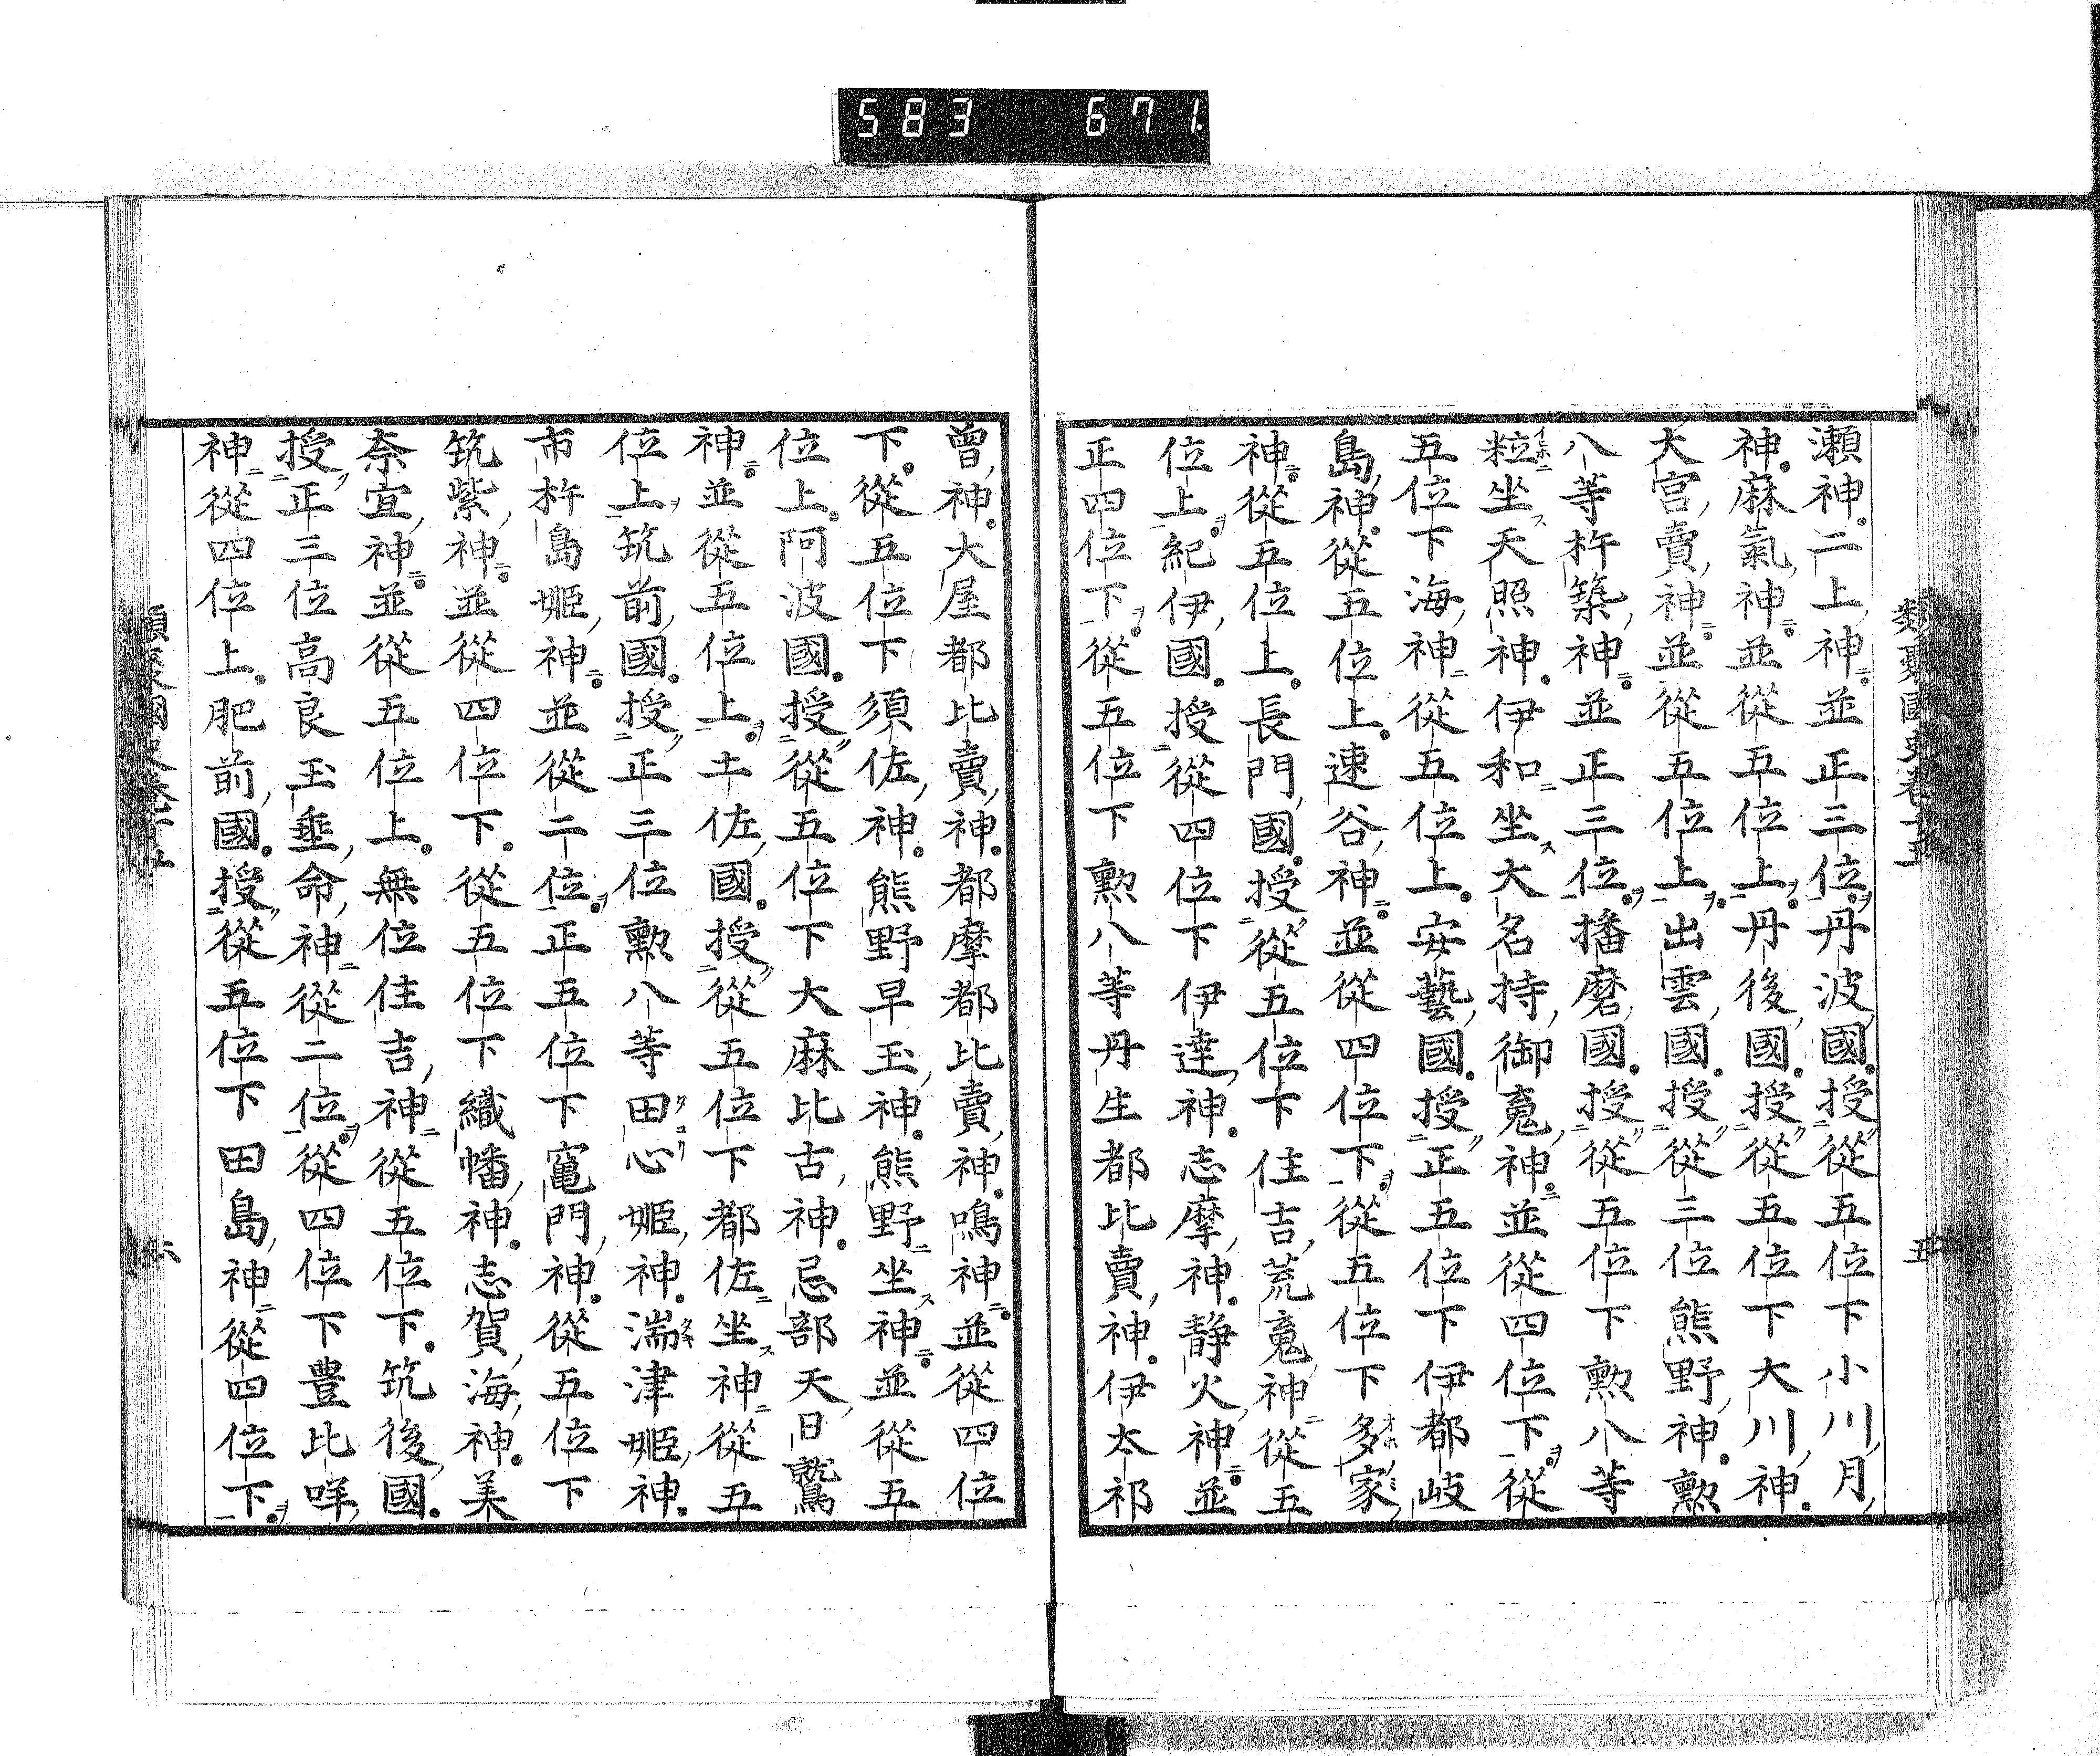 583 671
類聚國史卷十五
五
瀬神二上神並正三位丹波國授從五位下小川月
神麻氣神並從五位上丹後國授從五位下大川神
大宮賣神並從五位上出雲國授從三位熊野神勲
八等杵築神並正三位播磨國授從五位下勲八等
粒坐天照神伊和坐大名持御䰟神並從四位下從
五位下海神從五位上安藝國授正五位下伊都岐
島神從五位上速谷神並從四位下從五位下多家
神從五位上長門國授從五位下住吉荒䰟神從五
位上紀伊國授從四位下伊達神志摩神靜火神並
正四位下從五位下勲八等丹生都比賣神伊太祁
曾神大屋都比賣神都摩都比賣神鳴神並從四位
下從五位下須佐神熊野早玉神熊野坐神並從五
位上阿波國授從五位下大麻比古神忌部天日鷲
神並從五位上土佐國授從五位下都佐坐神從五
位上筑前國授正三位勲八等田心姫神湍津姫神
市杵島姫神並從二位正五位下竈門神從五位下
筑紫神並從四位下從五位下織幡神志賀海神美
奈宜神並從五位上無位住吉神從五位下筑後國
授正三位高良玉垂命神從二位從四位下豊比咩
神從四位上肥前國授從五位下田島神從四位下
類聚國史卷十五
六